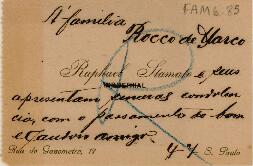 FAM6.85
A familia
Rocco de Marco
Raphael Stamato e seus
apresentam sinceras condolen
cias, com o passamento do bom
e
Rua do Gazometro, 19
S. Paulo